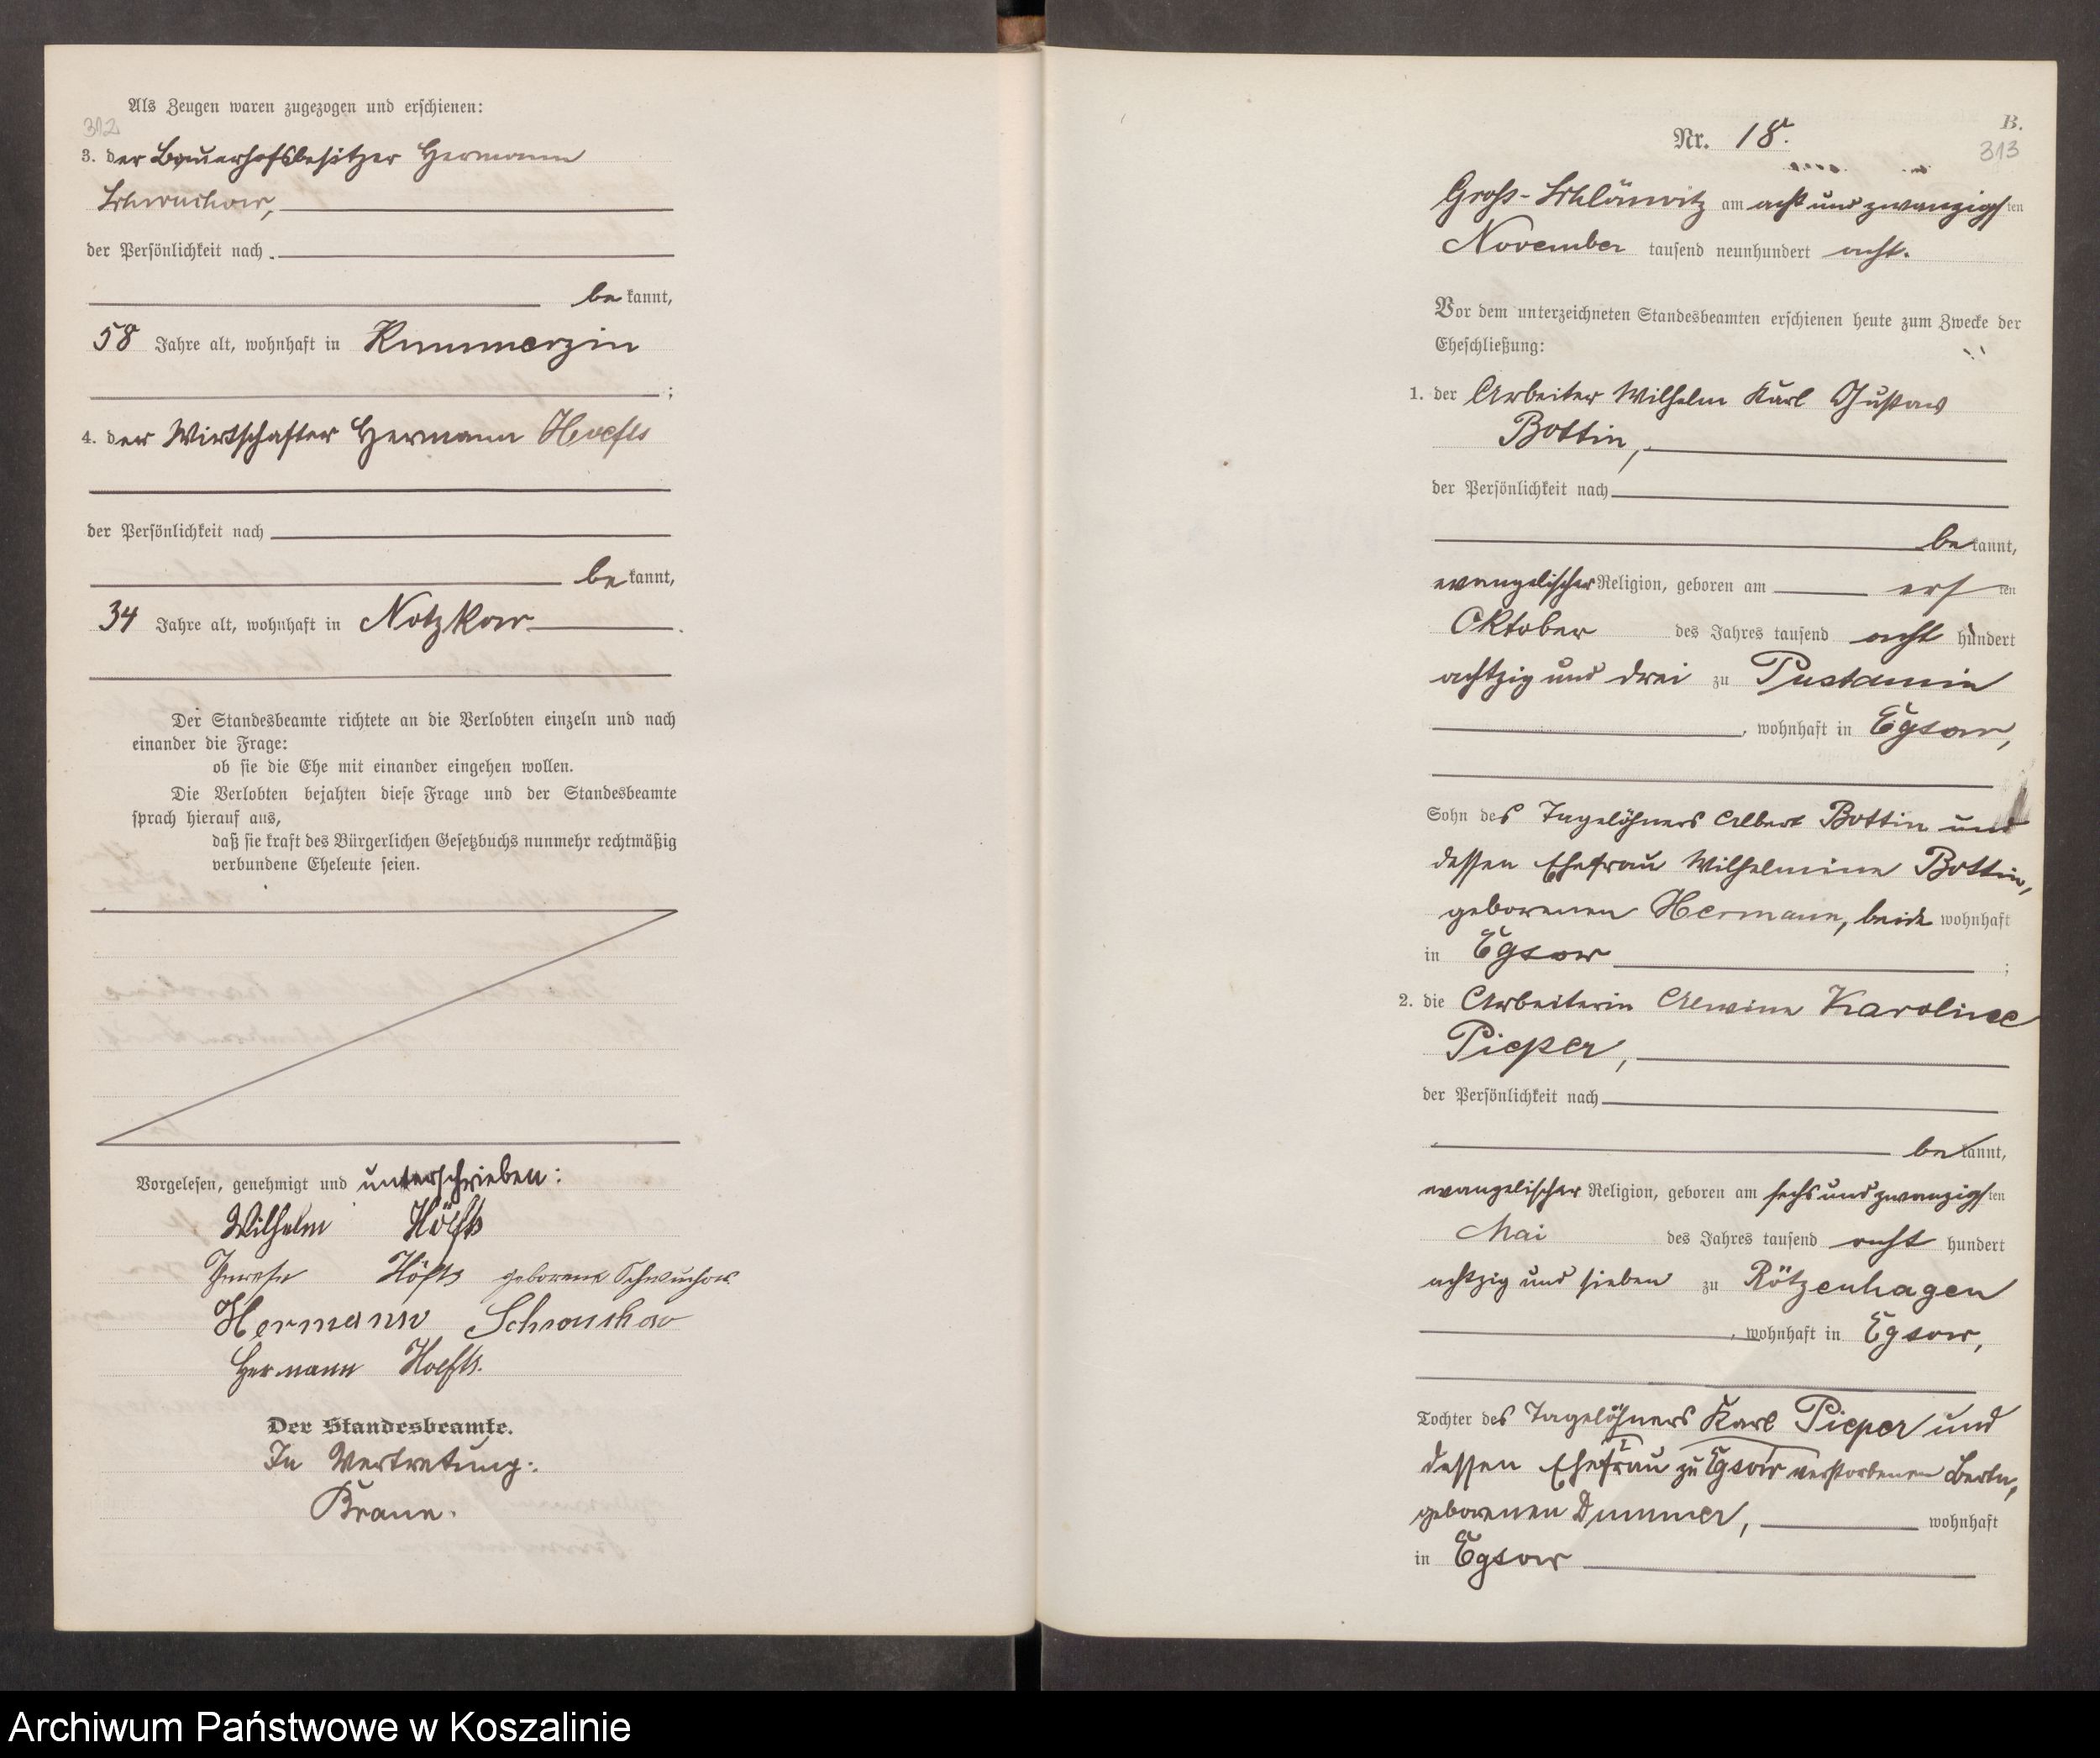 Als Zeugen waren zugezogen und erschienen:
312
3. der Bauerhofsbesitzer Hermann
Schwuchow,
der Persönlichkeit nach
bekannt,
58 Jahre alt, wohnhaft in Kummerzin
;
4. der Wirtschafter Hermann Hoefts
der Persönlichkeit nach
bekannt,
34 Jahre alt, wohnhaft in Notzkow
.
Der Standesbeamte richtete an die Verlobten einzeln und nach
einander die Frage:
ob sie die Ehe mit einander eingehen wollen.
Die Verlobten bejahten diese Frage und der Standesbeamte
sprach hierauf aus,
daß sie kraft des Bürgerlichen Gesetzbuchs nunmehr rechtmäßig
verbundene Eheleute seien.
Vorgelesen, genehmigt und unterschrieben:
Wilhelm Höfts
Höfts geborene Schwuchow
Hermann Schwuchow
Hermann Hoefts.
Der Standesbeamte.
In Vertretung:
B.
Nr. 18.
313
Groß-Schlönwitz am acht und zwanzigsten
November tausend neunhundert acht.
Vor dem unterzeichneten Standesbeamten erschienen heute zum Zwecke der
Eheschließung:
1. der Arbeiter Wilhelm Karl Gustav
Bottin,
der Persönlichkeit nach
bekannt,
evangelischer Religion, geboren am ersten
Oktober des Jahres tausend acht hundert
achtzig und drei zu Pustamin
, wohnhaft in Egsow,
Sohn des Tagelöhners Albert Bottin und
dessen Ehefrau Wilhelmine Bottin,
geborenen Hermann, beide wohnhaft
in Egsow
;
2. die Arbeiterin Alwine Karoline
Pieper,
der Persönlichkeit nach
bekannt,
evangelischer Religion, geboren am sechs und zwanzigsten
Mai des Jahres tausend acht hundert
achtzig und sieben zu Rötzenhagen
, wohnhaft in Egsow,
Tochter des Tagelöhners Karl Pieper und
dessen Ehefrau zu Egsow verstorbenen Berta,
geborenen Dummer, wohnhaft
in Egsow
Archiwum Państwowe w Koszalinie